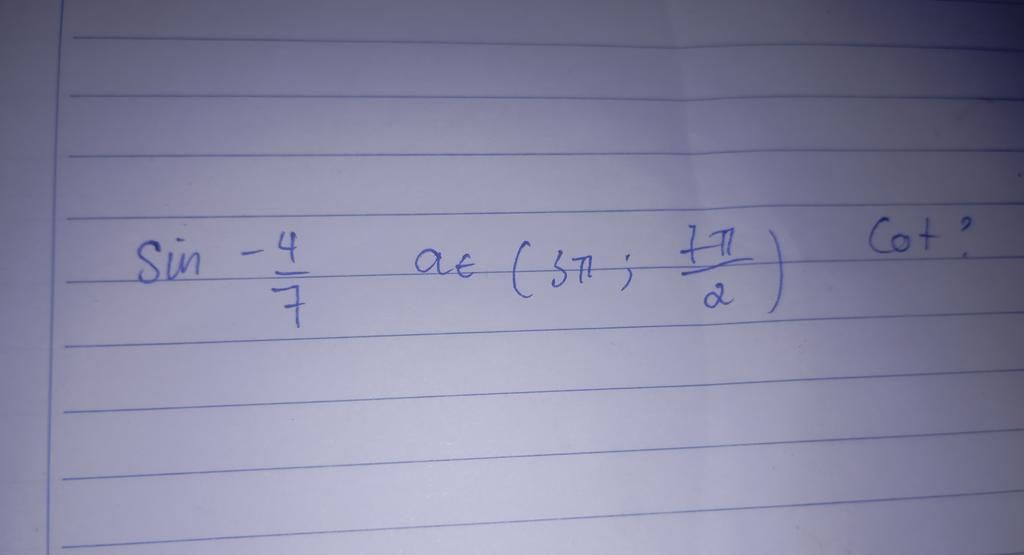 Sin -4/7 a∈ (3π ; 7π/2) Cot?